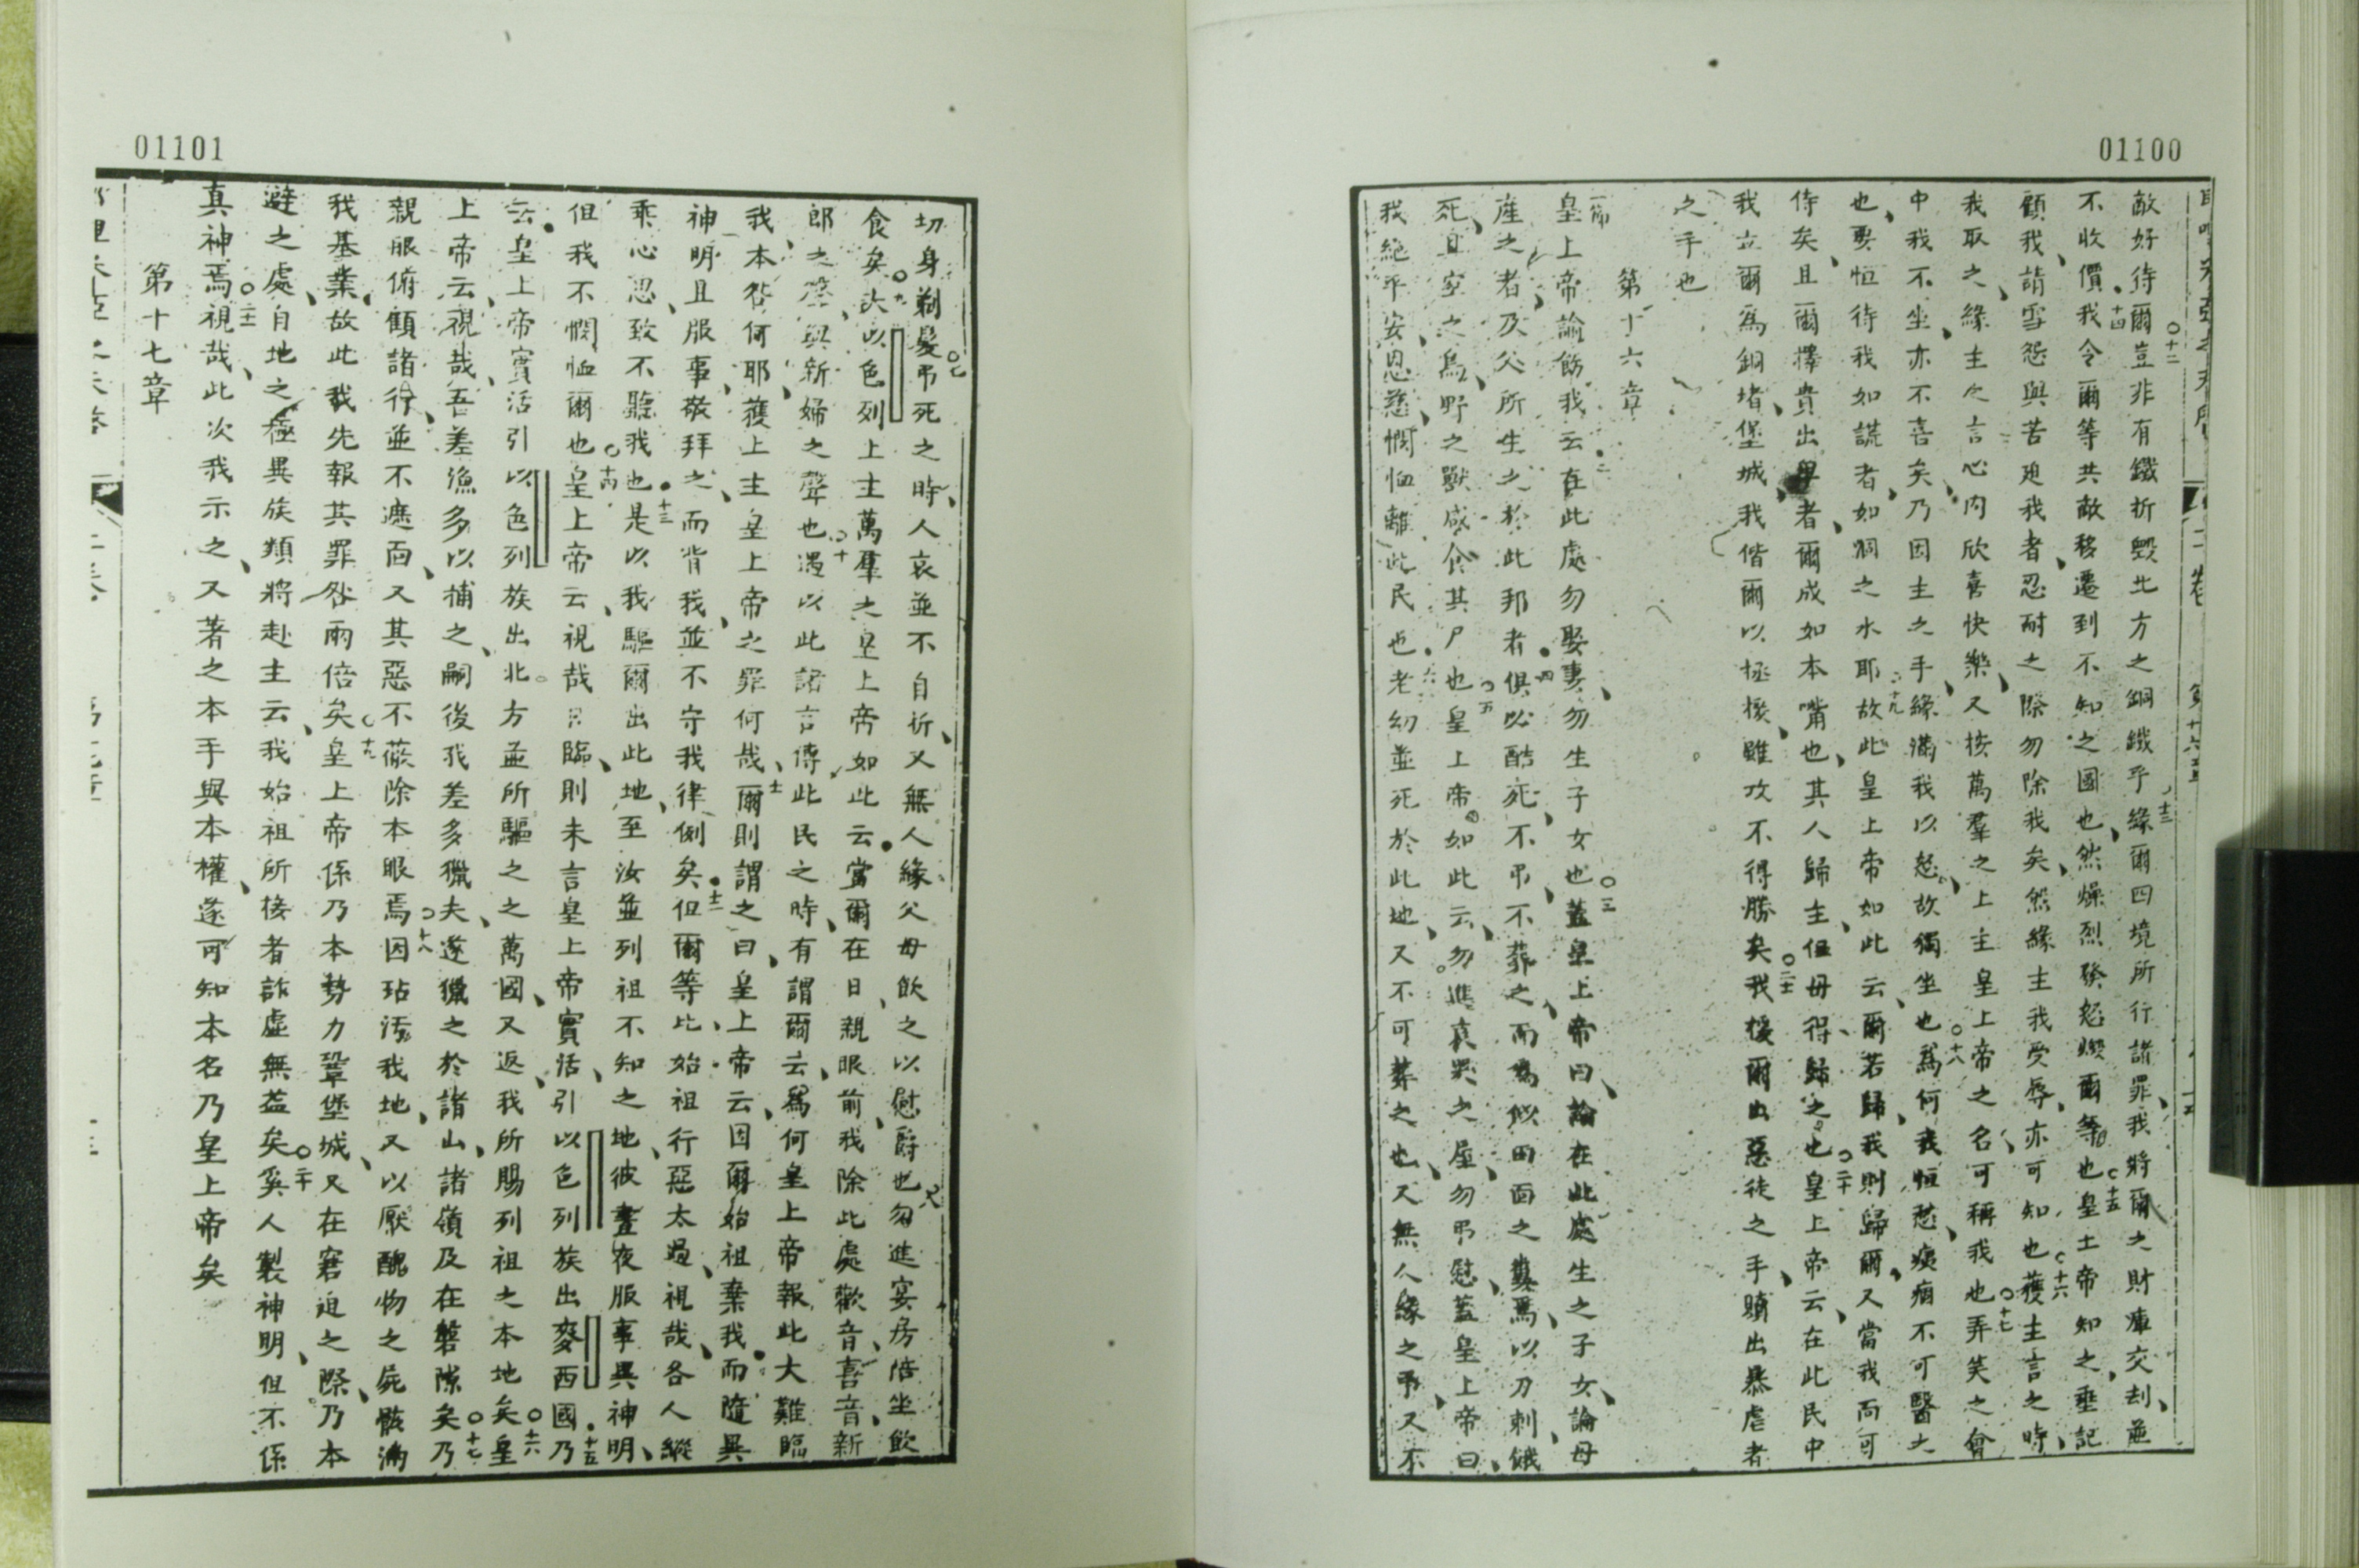 01100
敵好待爾豈非有鐵折毀北方之銅鐵乎緣爾四境所行諸罪我將爾之財庫交刦並
不收價我令爾等共敵移遷到不知之國也然燥烈發怒燬爾等也皇上帝知之垂記
顧我請雪怨與苦廹我者忍耐之際勿除我矣然緣主我受辱亦可知也獲主言之時
我取之緣主之言心內欣喜快樂又按萬羣之上主皇上帝之名可稱我也弄笑之會
中我不坐亦不喜矣乃因主之手緣滿我以怒故獨坐也爲何我恒愁痍痼不可醫大
也要恒待我如謊者如涸之水耶故此皇上帝如此云爾若歸我則歸爾又當我而可
侍矣且爾擇貴出卑者爾成如本嘴也其人歸主但毋得歸之也皇上帝云在此民中
我立爾爲銅堵堡城我偕爾以拯援雖攻不得勝矣我援爾出惡徒之手贖出暴虐者
之手也
第十六章
皇上帝諭飭我云在此處勿娶妻勿生子女也蓋皇上帝曰論在此處生之子女論母
產之者及父所生之於此邦者俱以酷死不弔不葬之而爲似田面之糞焉以刀刺餓
死且空之鳥野之獸咸食其尸也皇上帝如此云勿進哀哭之屋勿弔慰蓋皇上帝曰
我絕平安恩慈憫恤離此民也老幼並死於此地又不可葬之也又無人緣之弔又不
01101
切身剃髮弔死之時人哀並不自折又無人緣父母飲之以慰爵也勿進宴房陪坐飲
食矣夫以色列上主萬羣之皇上帝如此云當爾在日親眼前我除此處歡音喜音新
郎之聲與新婦之聲也遇以此諸言傳此民之時有謂爾云爲何皇上帝報此大難臨
我本咎何耶獲上主皇上帝之罪何哉爾則謂之曰皇上帝云因爾始祖棄我而隨異
神明且服事敬拜之而背我並不守我律例矣但爾等比始祖行惡太過祖哉各人縱
乖心思致不聽我也是以我驅爾出此地至汝並列祖不知之地彼晝夜服事異神明
但我不憫恤爾也皇上帝云視哉日臨則未言皇上帝實活引以色列族出麥西國乃
云皇上帝實活引以色列族出北方並所驅之之萬國又返我所賜列祖之本地矣皇
上帝云視哉吾差漁多以捕之嗣後我差多獵夫遂獵之於諸山諸嶺及在磐隙矣乃
親眼俯顧諸行並不遮面又其惡不蔽除本眼焉因玷汚我地又以厭醜物之屍骸滿
我基業故此我先報其罪咎兩倍矣皇上帝係乃本勢力鞏堡城又在窘迫之際乃本
避之處自地之極異族類將赴主云我始祖所接者詐虛無益矣奚人製神明但不係
真神焉視哉此次我示之又著之本手與本權遂可知本名乃皇上帝矣
第十七章